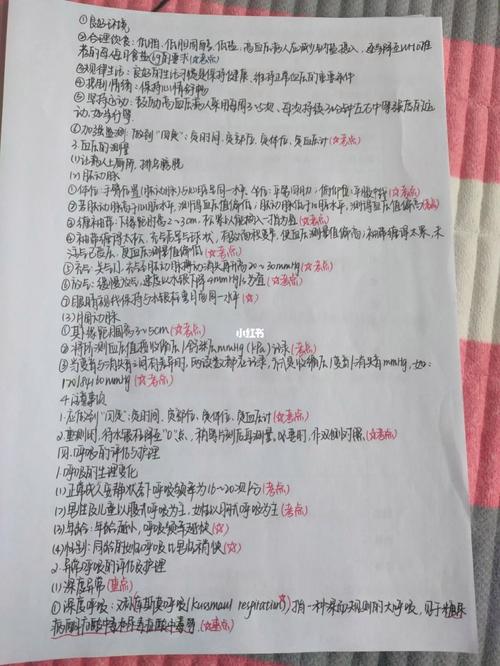 ①良好环境
②合理饮食：低脂、低胆固醇、低盐，高血压病人应减少钠盐摄入，逐步降至WHO推
荐的每人每日食盐6g的要求(☆考点)
③规律生活：良好的生活习惯是保持健康、维持正常血压的重要条件
④控制情绪：保持心情舒畅
⑤坚持运动：鼓励高血压病人采用每周3~5次、每次持续30分钟左右中等强度的运
动，如步行等
⑥加强监测：做到"四定"：定时间、定部位、定体位、定血压计(☆考点)
3.血压的测量
(1)让病人上厕所，排空膀胱
(2)肱动脉
①体位：手臂位置(肱动脉)与心脏呈同一水平。坐位：平第四肋；仰卧位：平腋中线(☆考点)
②若肱动脉高于心脏水平，测得血压值偏低；肱动脉低于心脏水平，测得血压值偏高(☆考点)
③缠袖带：下缘距肘窝2~3cm，松紧以能插入一指为宜(☆考点)
④袖带缠得太松，充气后呈气球状，有效面积变窄，使血压测量值偏高；袖带缠得太紧，未
注气已受压，使血压测量值偏低(☆考点)
⑤充气：关气门，充气至肱动脉搏动消失再升高20~30mmHg(☆考点)
⑥放气：缓慢放气，速度以水银下降4mmHg/s为宜(☆考点)
⑦眼睛视线保持与水银柱弯月面同一水平(☆)
(3)腘动脉
①其下缘距腘窝3~5cm(☆考点)
②将所测血压值按收缩压/舒张压mmHg(kPa)记录(☆考点)
③当变音与消失音之间有差异时，两读数都应记录，方式是收缩压/变音/消失音mmHg，如：
170/84/60mmHg(☆考点)
4.注意事项
1.应做到"四定"：定时间、定部位、定体位、定血压计(☆考点)
2.重测时，待水银柱降至"0"点，稍等片刻后再测量。必要时，作双侧对照(☆考点)
四.呼吸的评估与护理
1.呼吸的生理变化
(1)正常成人安静状态下呼吸频率为16~20次/分(考点)
(2)男性及儿童以腹式呼吸为主，女性以胸式呼吸为主(☆考点)
(3)年龄：年龄越小，呼吸频率越快(☆)
(4)性别：同龄的女性呼吸比男性稍快(☆)
2.异常呼吸的评估及护理
(1)深度异常(重点)
①深度呼吸：又称库斯莫呼吸(Kussmaul respiration)☆，指一种深而规则的大呼吸，见于糖尿
病酮症酸中毒和尿毒症酸中毒等(☆重点)
小红书